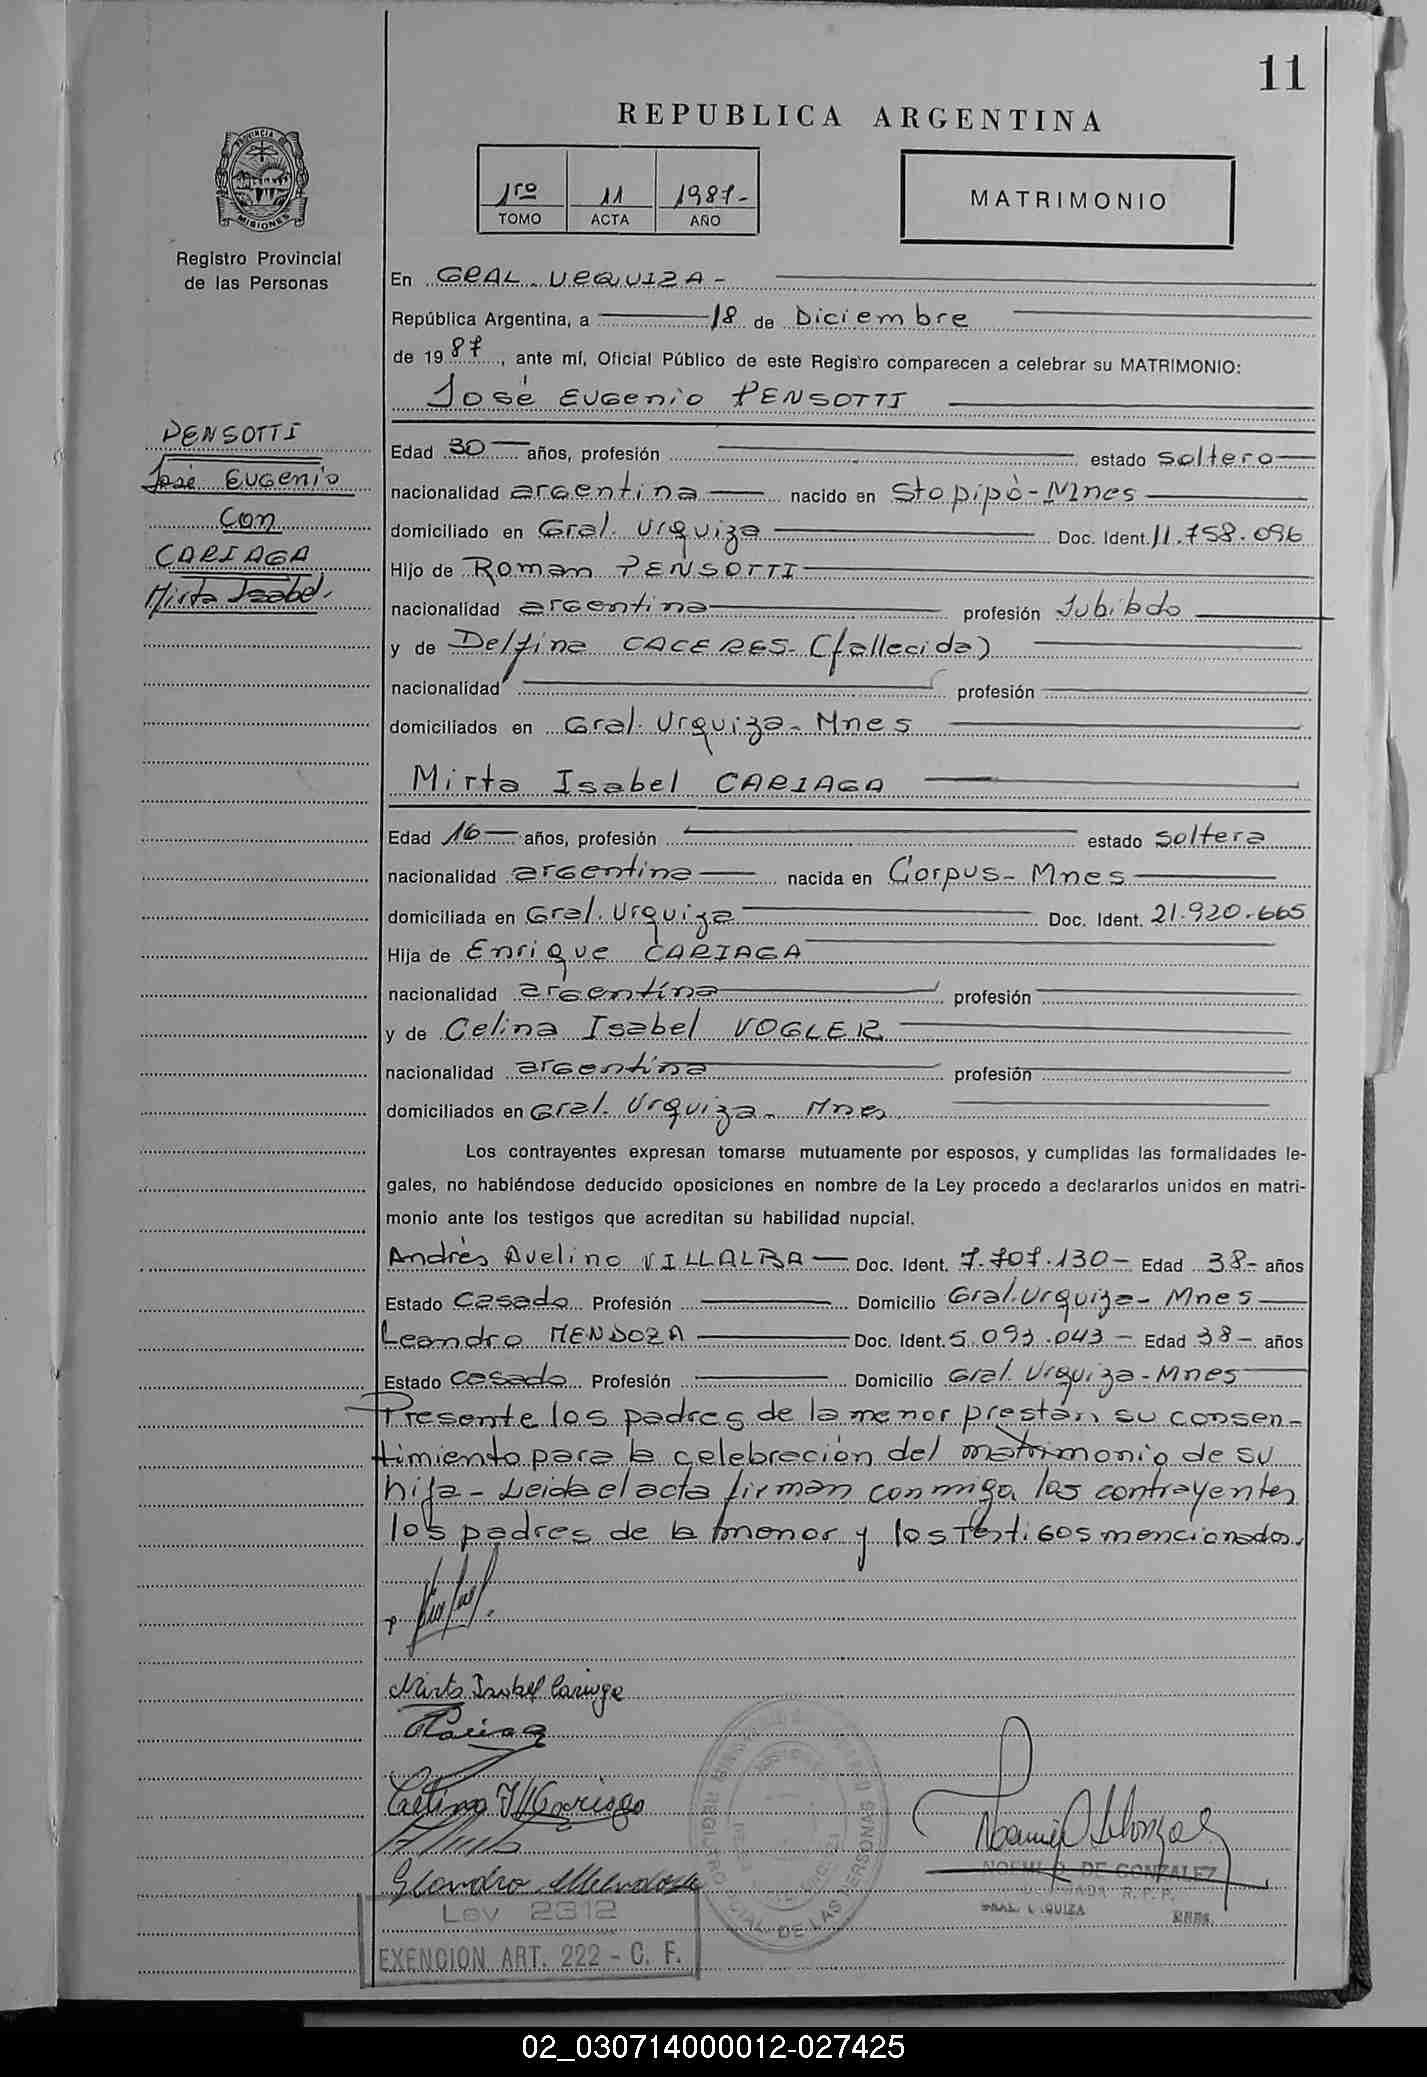 11
REPUBLICA ARGENTINA
1ro 11 1987-
TOMO ACTA AÑO
MATRIMONIO
PROVINCIA DE
MISIONES
Registro Provincial
de las Personas
En GRAL. URQUIZA-
República Argentina, a 18 de Diciembre
de 1987, ante mí, Oficial Público de este Registro comparecen a celebrar su MATRIMONIO:
José Eugenio PENSOTTI
PENSOTTI
José Eugenio
Con
CARIAGA
Mirta Isabel.
Edad 30 años, profesión estado soltero
nacionalidad argentina nacido en Sto pipó-Mnes
domiciliado en Gral. Urquiza Doc. Ident. 11.758.096
Hijo de Roman PENSOTTI
nacionalidad argentina profesión Jubilado
y de Delfina CACERES-(fallecida)
nacionalidad profesión
domiciliados en Gral. Urquiza- Mnes
Mirta Isabel CARIAGA
Edad 16 años, profesión estado soltera
nacionalidad argentina nacida en Corpus- Mnes
domiciliada en Gral. Urquiza Doc. Ident. 21.920.665
Hija de Enrique CARIAGA
nacionalidad argentina profesión
y de Celina Isabel VOGLER
nacionalidad argentina profesión
domiciliados en Gral. Urquiza- Mnes
Los contrayentes expresan tomarse mutuamente por esposos, y cumplidas las formalidades le-
gales, no habiéndose deducido oposiciones en nombre de la Ley procedo a declararlos unidos en matri-
monio ante los testigos que acreditan su habilidad nupcial.
Andrés Avelino VILLALBA Doc. Ident. 7.707.130- Edad 38- años
Estado Casado Profesión Domicilio Gral. Urquiza- Mnes
Leandro MENDOZA Doc. Ident. 5.093.043- Edad 38- años
Estado casado Profesión Domicilio Gral. Urquiza-Mnes
Presente los padres de la menor prestán su consen-
timiento para la celebración del matrimonio de su
hija- Leida el acta firman conmigo los contrayentes
los padres de la menor y los Testigos mencionados.
Mirta Isabel Cariaga
Celina I V Cariaga
Leandro Mendoza
NOEMI D. DE GONZALEZ
DELEGADA R.P.P.
GRAL. URQUIZA MNES.
Ley 2312
EXENCION ART. 222 - C. F.
02_030714000012-027425